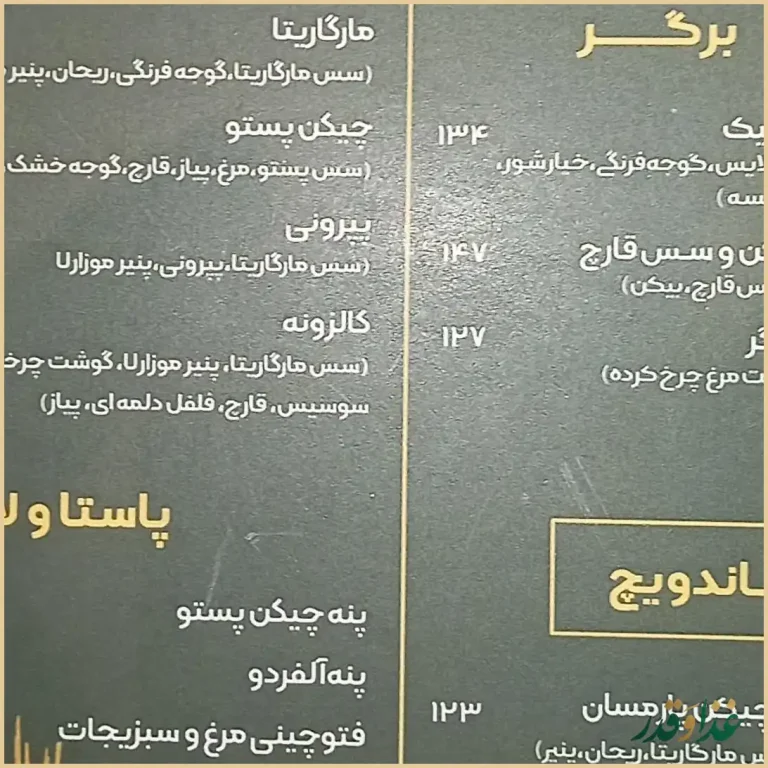 برگر
یک ۱۳۴
لایس، گوجه‌فرنگی، خیارشور،
سه)
کن و سس قارچ ۱۴۷
س قارچ، بیکن)
گر ۱۲۷
ت مرغ چرخ کرده)
ساندویچ
چیکن پارمسان ۱۲۳
س مارگاریتا، ریحان، پنیر)
مارگاریتا
(سس مارگاریتا، گوجه فرنگی، ریحان، پنیر
چیکن پستو
(سس پستو، مرغ، پیاز، قارچ، گوجه خشک،
پپرونی
(سس مارگاریتا، پپرونی، پنیر موزارلا
کالزونه
(سس مارگاریتا، پنیر موزارلا، گوشت چرخ
سوسیس، قارچ، فلفل دلمه ای، پیاز)
پاستا و لا
پنه چیکن پستو
پنه آلفردو
فتوچینی مرغ و سبزیجات